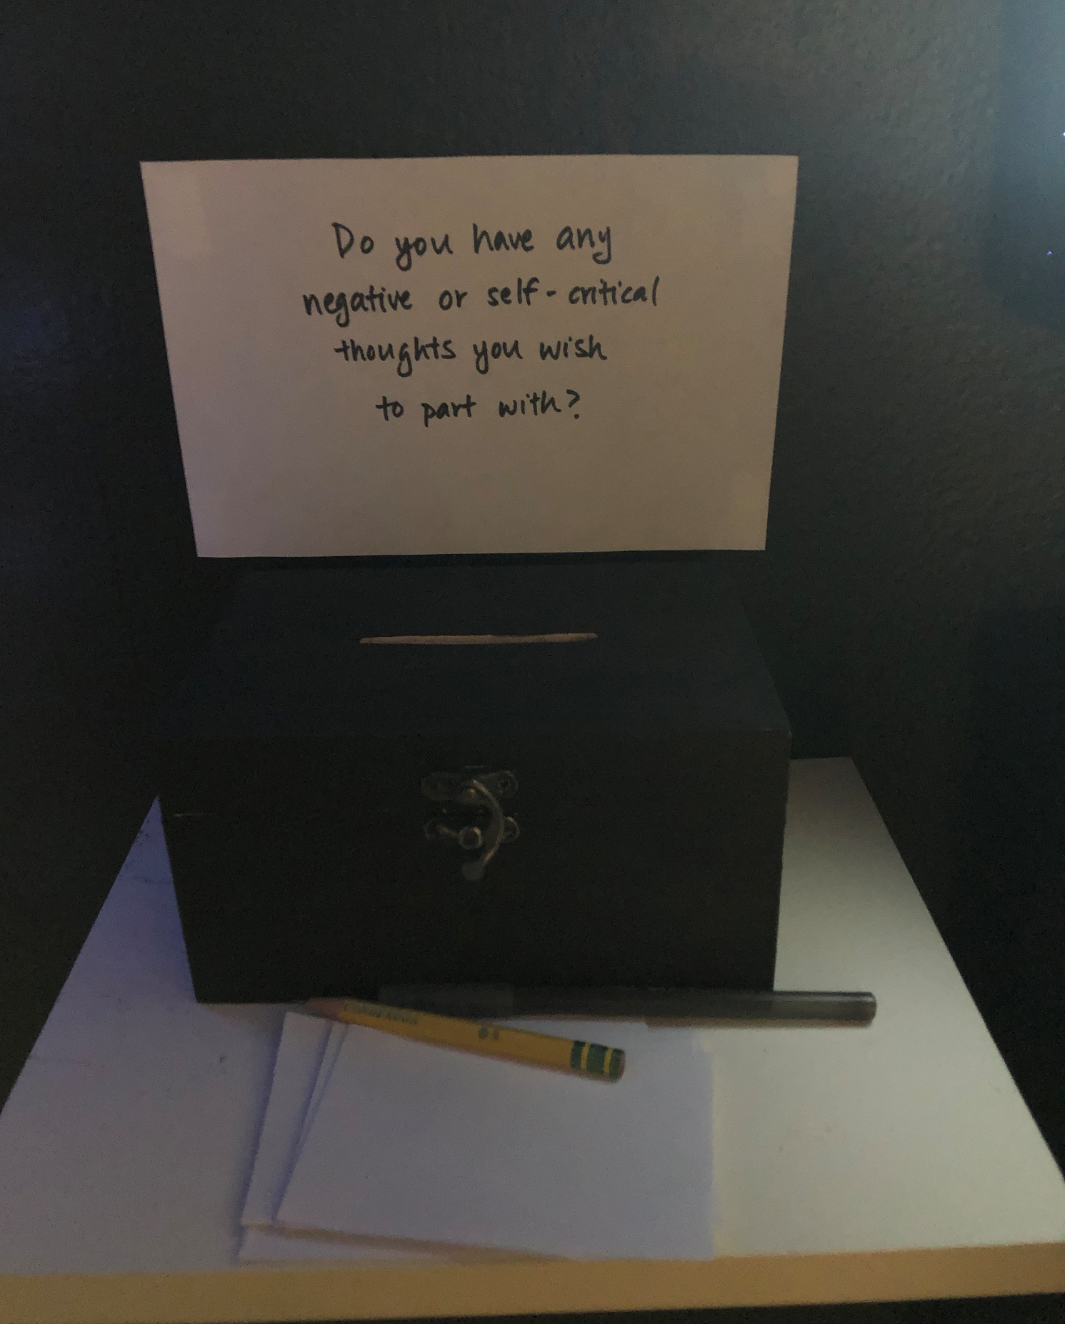 Do you have any
negative or self-critical
thoughts you wish
to part with?